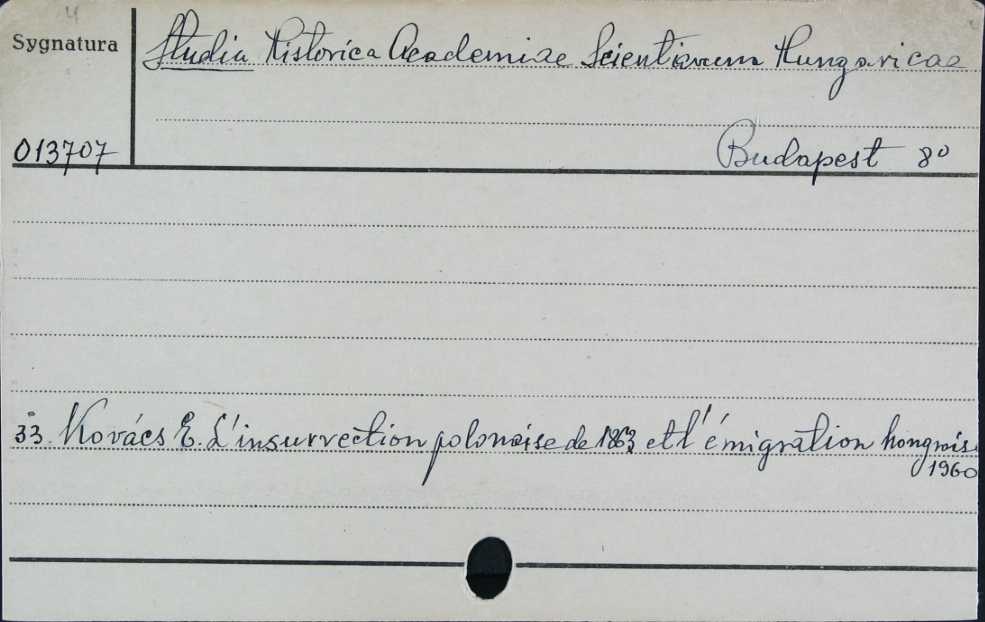 4
Sygnatura
Studia Historica Academiae Scientiarum Hungaricae
013707
Budapest 8°
33. Kovács E. L'insurrection polonaise de 1863 et l'émigration hongroise
1960